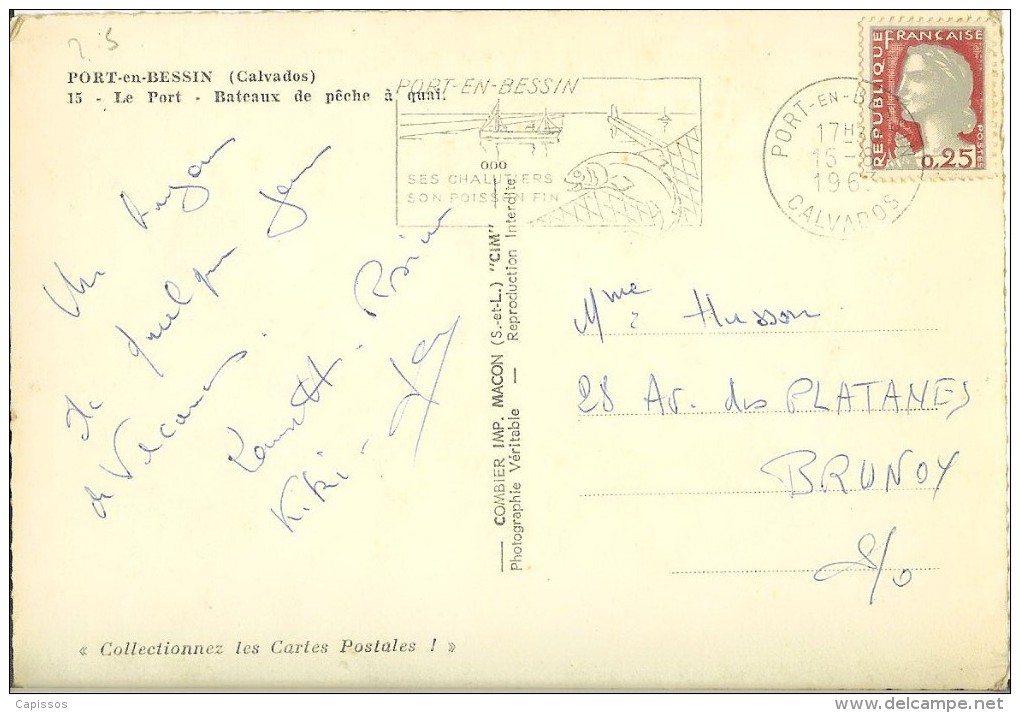 2.5
PORT-en-BESSIN (Calvados)
15 - Le Port - Bateaux de pêche à quai.
PORT-EN-BESSIN
SES CHALUTIERS
SON POISSON FIN
PORT-EN-BE
17H
16-
196
CALVADOS
REPUBLIQUE
FRANÇAISE
POSTES
0,25
Un
de quelques jours
de Vacances
Kiki -
— COMBIER IMP. MACON (S.-et-L.) "CIM" —
Photographie Véritable — Reproduction Interdite
Mme Husson
28 Av. des PLATANES
BRUNOY
S/O
« Collectionnez les Cartes Postales ! »
Capissos
delcampe.net